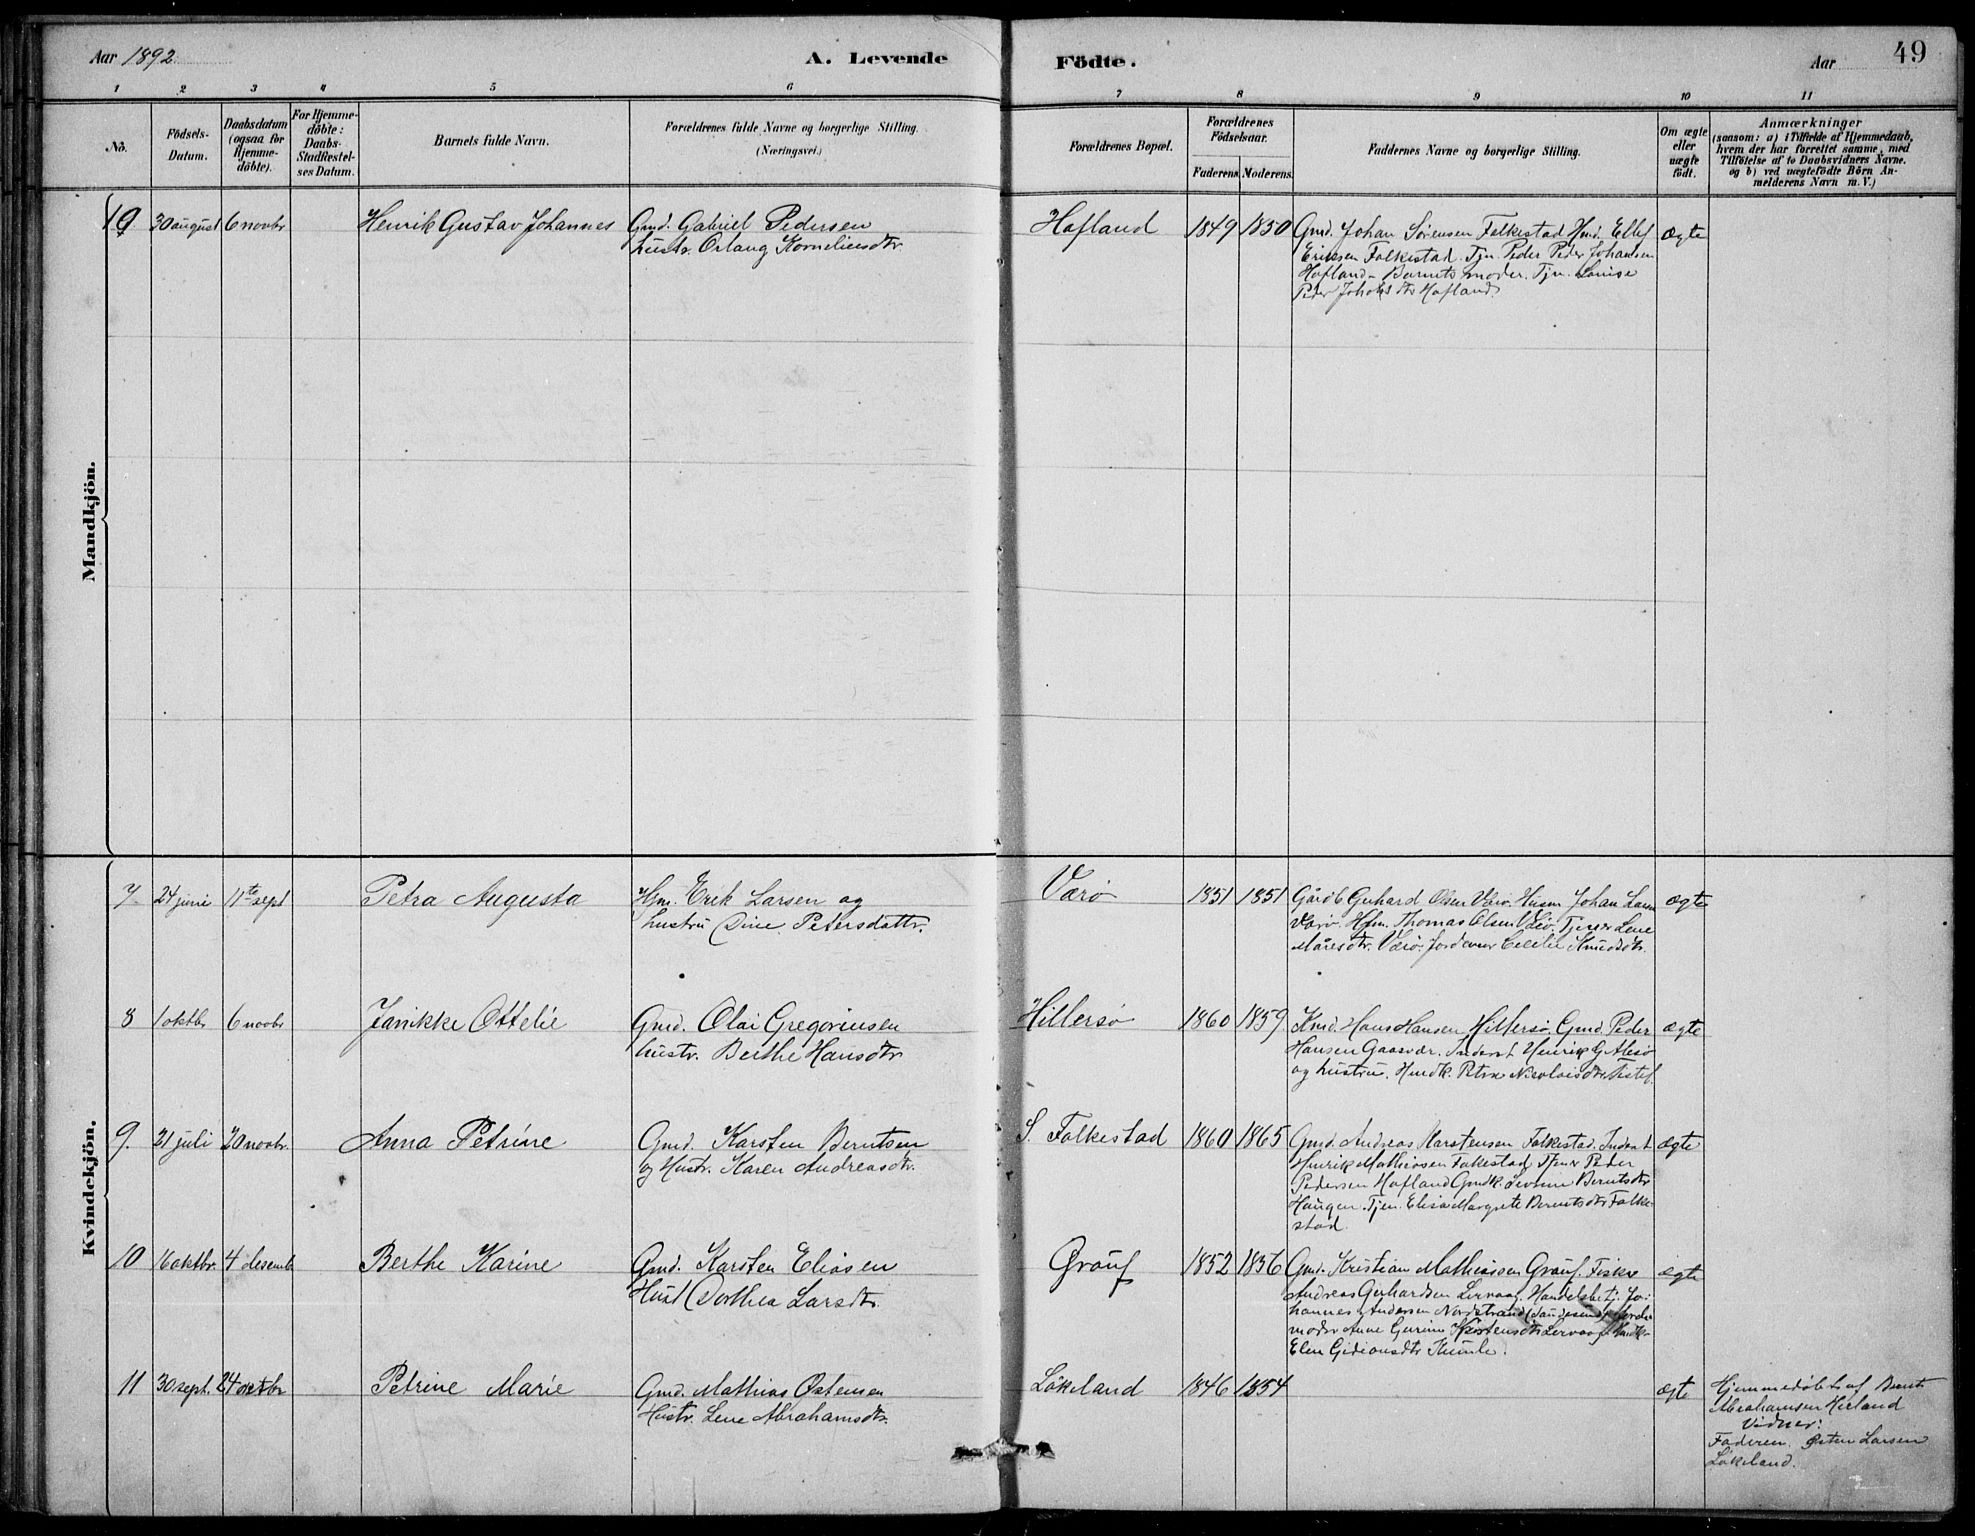 Aar 1892
A. Levende
Födte.
Aar
49
1 2 3 4 5 6 7 8 9 10 11
No.
Födsels-
Datum.
Daabsdatum
(ogsaa for
Hjemme-
döbte).
For Hjemme-
döbte:
Daabs-
Stadfæstel-
ses Datum.
Barnets fulde Navn.
Forældrenes fulde Navne og borgerlige Stilling.
(Næringsvei.)
Forældrenes Bopæl.
Forældrenes
Födselsaar.
Faderens. Moderens.
Faddernes Navne og borgerlige Stilling.
Om ægte
eller
uægte
födt.
Anmærkninger
(saasom: a) i Tilfælde af Hjemmedaab,
hvem der har forrettet samme, med
Tilföielse af to Daabsvidners Navne.
og b) ved uægtefödte Börn An-
melderens Navn m. V.)
Mandkjön.
30 august 6 novbr Henrik Gustav Johannes
Gmd. Gabriel Pedersen
hustr. Orlaug Korneliusdtr
Hofland 1849 1850
Gmd. Johan Sörensen Folkestad Hmd. Ellef
Ericsen Folkestad. Tjn. Peder Peder Johansen
Hofland - Barnets moder. Tjn. Lovise
Peder Hofland.
ægte
Kvindekjön.
7 24 juni 11te sept Petra Augusta
Hm. Erik Larsen og
hustru Dine Petersdattr.
Værö 1851 1851
Gårdb Gerhard Olsen Værö. Husm Johan Larsen
Værö. Hm. Thomas Olsen Værö. Tjener Lene
Værö. Jordemor Cecilie Knudsdtr.
ægte
8 1 oktbr 6 novbr Janikke Ottelie
Gmd. Olai Gregoriusen
hustr. Berthe Hansdtr
Hillersö 1860 1859
Kmd. Hans Hansen Hillersö. Gmd. Peder
Hansen Gaasvær. Inderst Henrik G Alesö
og hustru. Petra Nicolaisdtr
ægte
9. 21 juli 20 novbr. Anna Petrine
Gmd. Karsten Berntsen
og Hustr. Karen Andreasdtr.
S. Folkestad 1860 1865
Gmd. Andreas Karstensen Folkestad. Inderst
Henrik Mathiasen Folkestad Tjener Peder
Pedersen Hofland Gmdk. Berntsdtr
Haugen. Tjen. Elisa Margrete Berntsdtr Folke-
stad.
ægte
10 16 oktbr. 4 desemb Berthe Karine
Gmd. Karsten Eliasen
Hust Dorthea Larsdtr.
Grauf 1852 1856
Gmd. Kristian Mathiassen Grauf. Fisker
Andreas Gerhardsen Lervaag. Handelsbetj. Jo-
hannes Andersen Nordstrand
moder Ane Gurine Lervaag
Elen Gideonsdtr Kumle.
ægte
11 30 sept. 24 oktbr Petrine Marie
Gmd. Mathias Östensen
Hustr. Lene Abrahamsdtr.
Lökeland 1846 1854
ægte
Hjemmedöbt af Bernt
Abrahamsen Herland
Vidner:
Faderen. Östen Larsen
Lökeland.